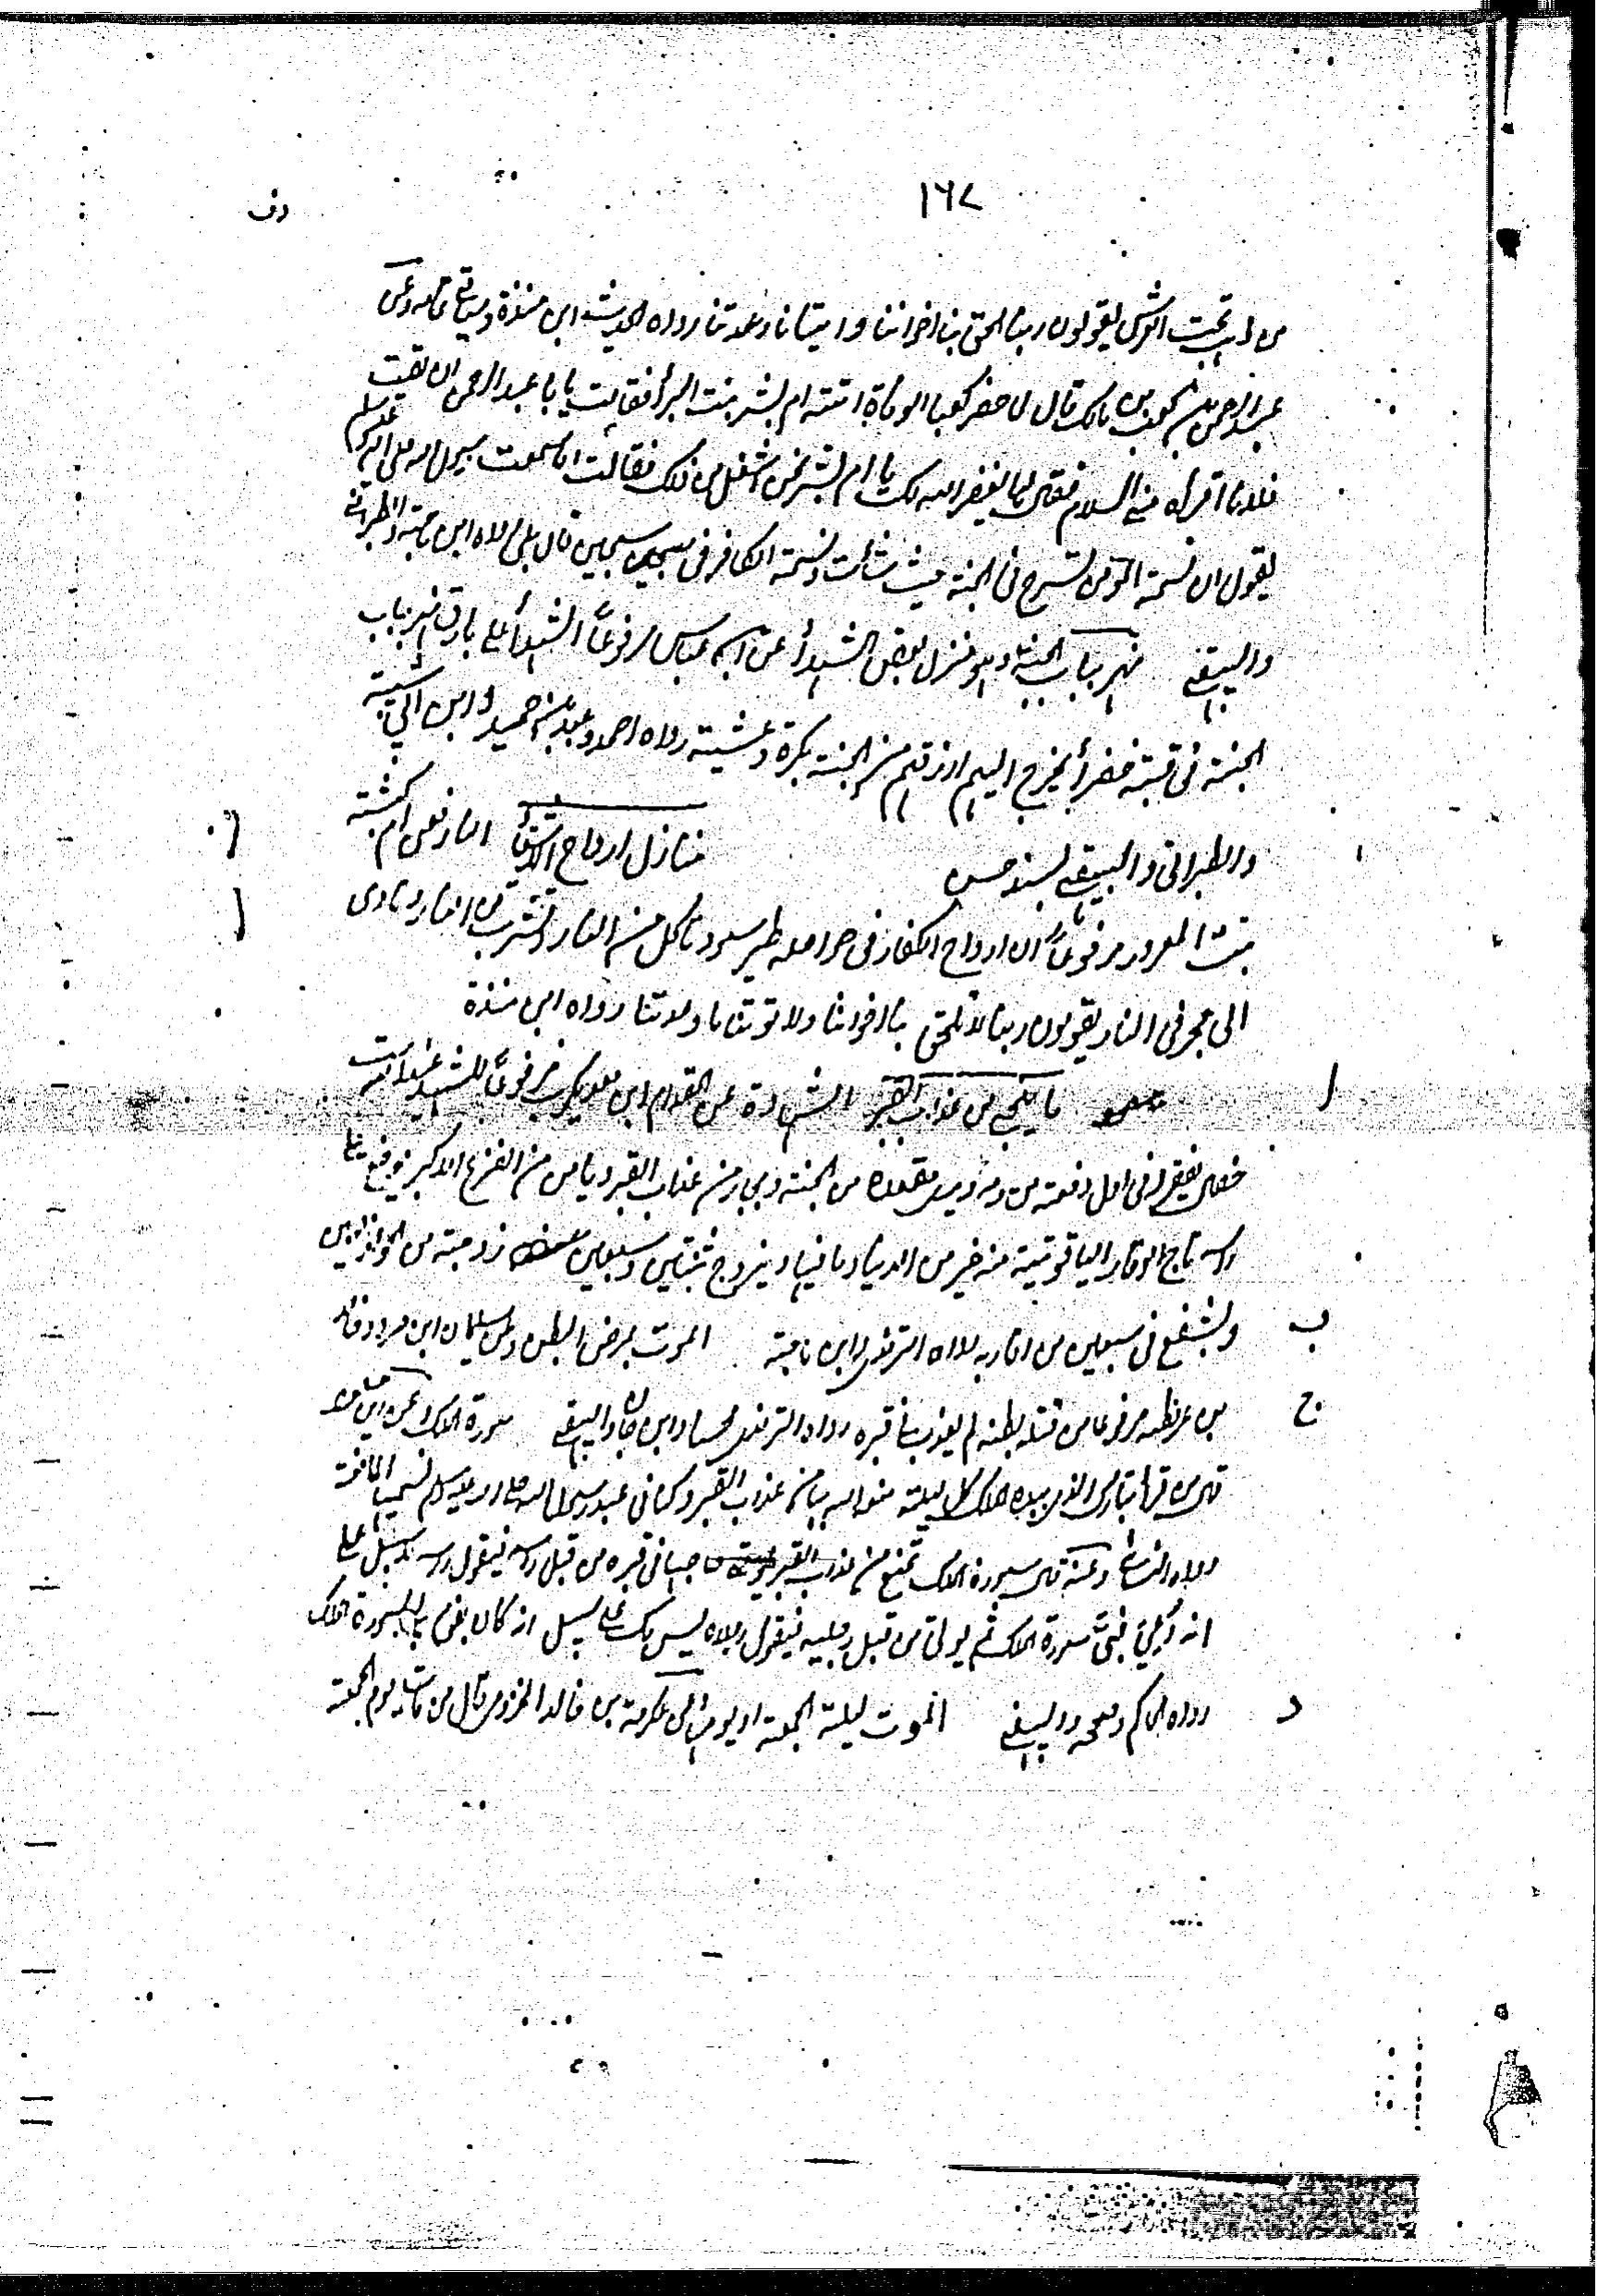 ١٦٨
من ذهب تحت العرش يقولون ربنا الحق بنا اخواننا و اتينا ما وعدتنا رواه الحديث ابن منذة وسياتي تمامه وعن
عبد الرحمن بن كعب بن مالك قال لما حضر كعبا الوفاة اتته ام بشر بنت البرأ فقالت يا ابا عبد الرحمن ان لقيت
فلانا اقرأه مني السلام فقال لها يغفر الله لك يا ام بشر نحن اشغل من ذلك فقالت اما سمعت رسول الله صلى الله عليه وسلم
يقول ان نسمة المؤمن تسرح في الجنة حيث شأت ونسمة الكافر في سجين قال بلى رواه ابن ماجة والطبراني
والبيهقي نهر بباب الجنة وهو منزل لبعض الشهدأ عن ابن عباس مرفوعاً الشهدأ على بارق نهر بباب
الجنة في قبة خضرأ يخرج اليهم ارزقهم من الجنة بكرة وعشية رواه احمد وعبد بن حميد وابن ابي شيبة
والطبراني والبيهقي بسند حسن منازل ارواح الاشقيأ النار فعن ام كبشة
بنت المعرور مرفوعاً ان ارواح الكفار في حواصل طير سود تاكل من النار وتشرب من النار وتاوى
الى جحر في النار يقولون ربنا لا تلحق بنا اخواننا ولا توتنا ما وعدتنا رواه ابن منذة
ا ما ينجي من عذاب القبر الشهادة عن المقدام ابن معديكرب مرفوعاً للشهيد عند الله ست
خصال يغفر له في اول دفعة من دمه ويرى مقعده من الجنة ويجار من عذاب القبر ويامن من الفزع الاكبر ويوضع على
راسه تاج الوقار الياقوتة منه خير من الدنيا وما فيها ويزوج ثنتين وسبعين زوجة من الحور العين
ب ويشفع في سبعين من اقاربه رواه الترمذي وابن ماجة الموت بمرض البطن وعن سليمان ابن صرد وخالد
ج بن عرفطة مرفوعا من قتله بطنه لم يعذب في قبره رواه الترمذي وحسنه وابن ماجة والبيهقي سورة الملك وعن ابن مسعود
قال من قرأ تبارك الذي بيده الملك كل ليلة منعه الله بها من عذاب القبر وكنا في عهد رسول الله صلى الله عليه وسلم نسميها المانعة
رواه النسائي وعنه قال سورة الملك تمنع من عذاب القبر يوتى صاحبها في قبره من قبل راسه فيقول راسه لا سبيل على
انه وعى فى سورة الملك ثم يوتى من قبل رجليه فيقول رجلاه ليس لك على سبيل انه كان يقوم بى بسورة الملك
د رواه الحاكم وصححه والبيهقي الموت ليلة الجمعة او يومها عن عكرمة بن خالد المخزومي قال من مات يوم الجمعة